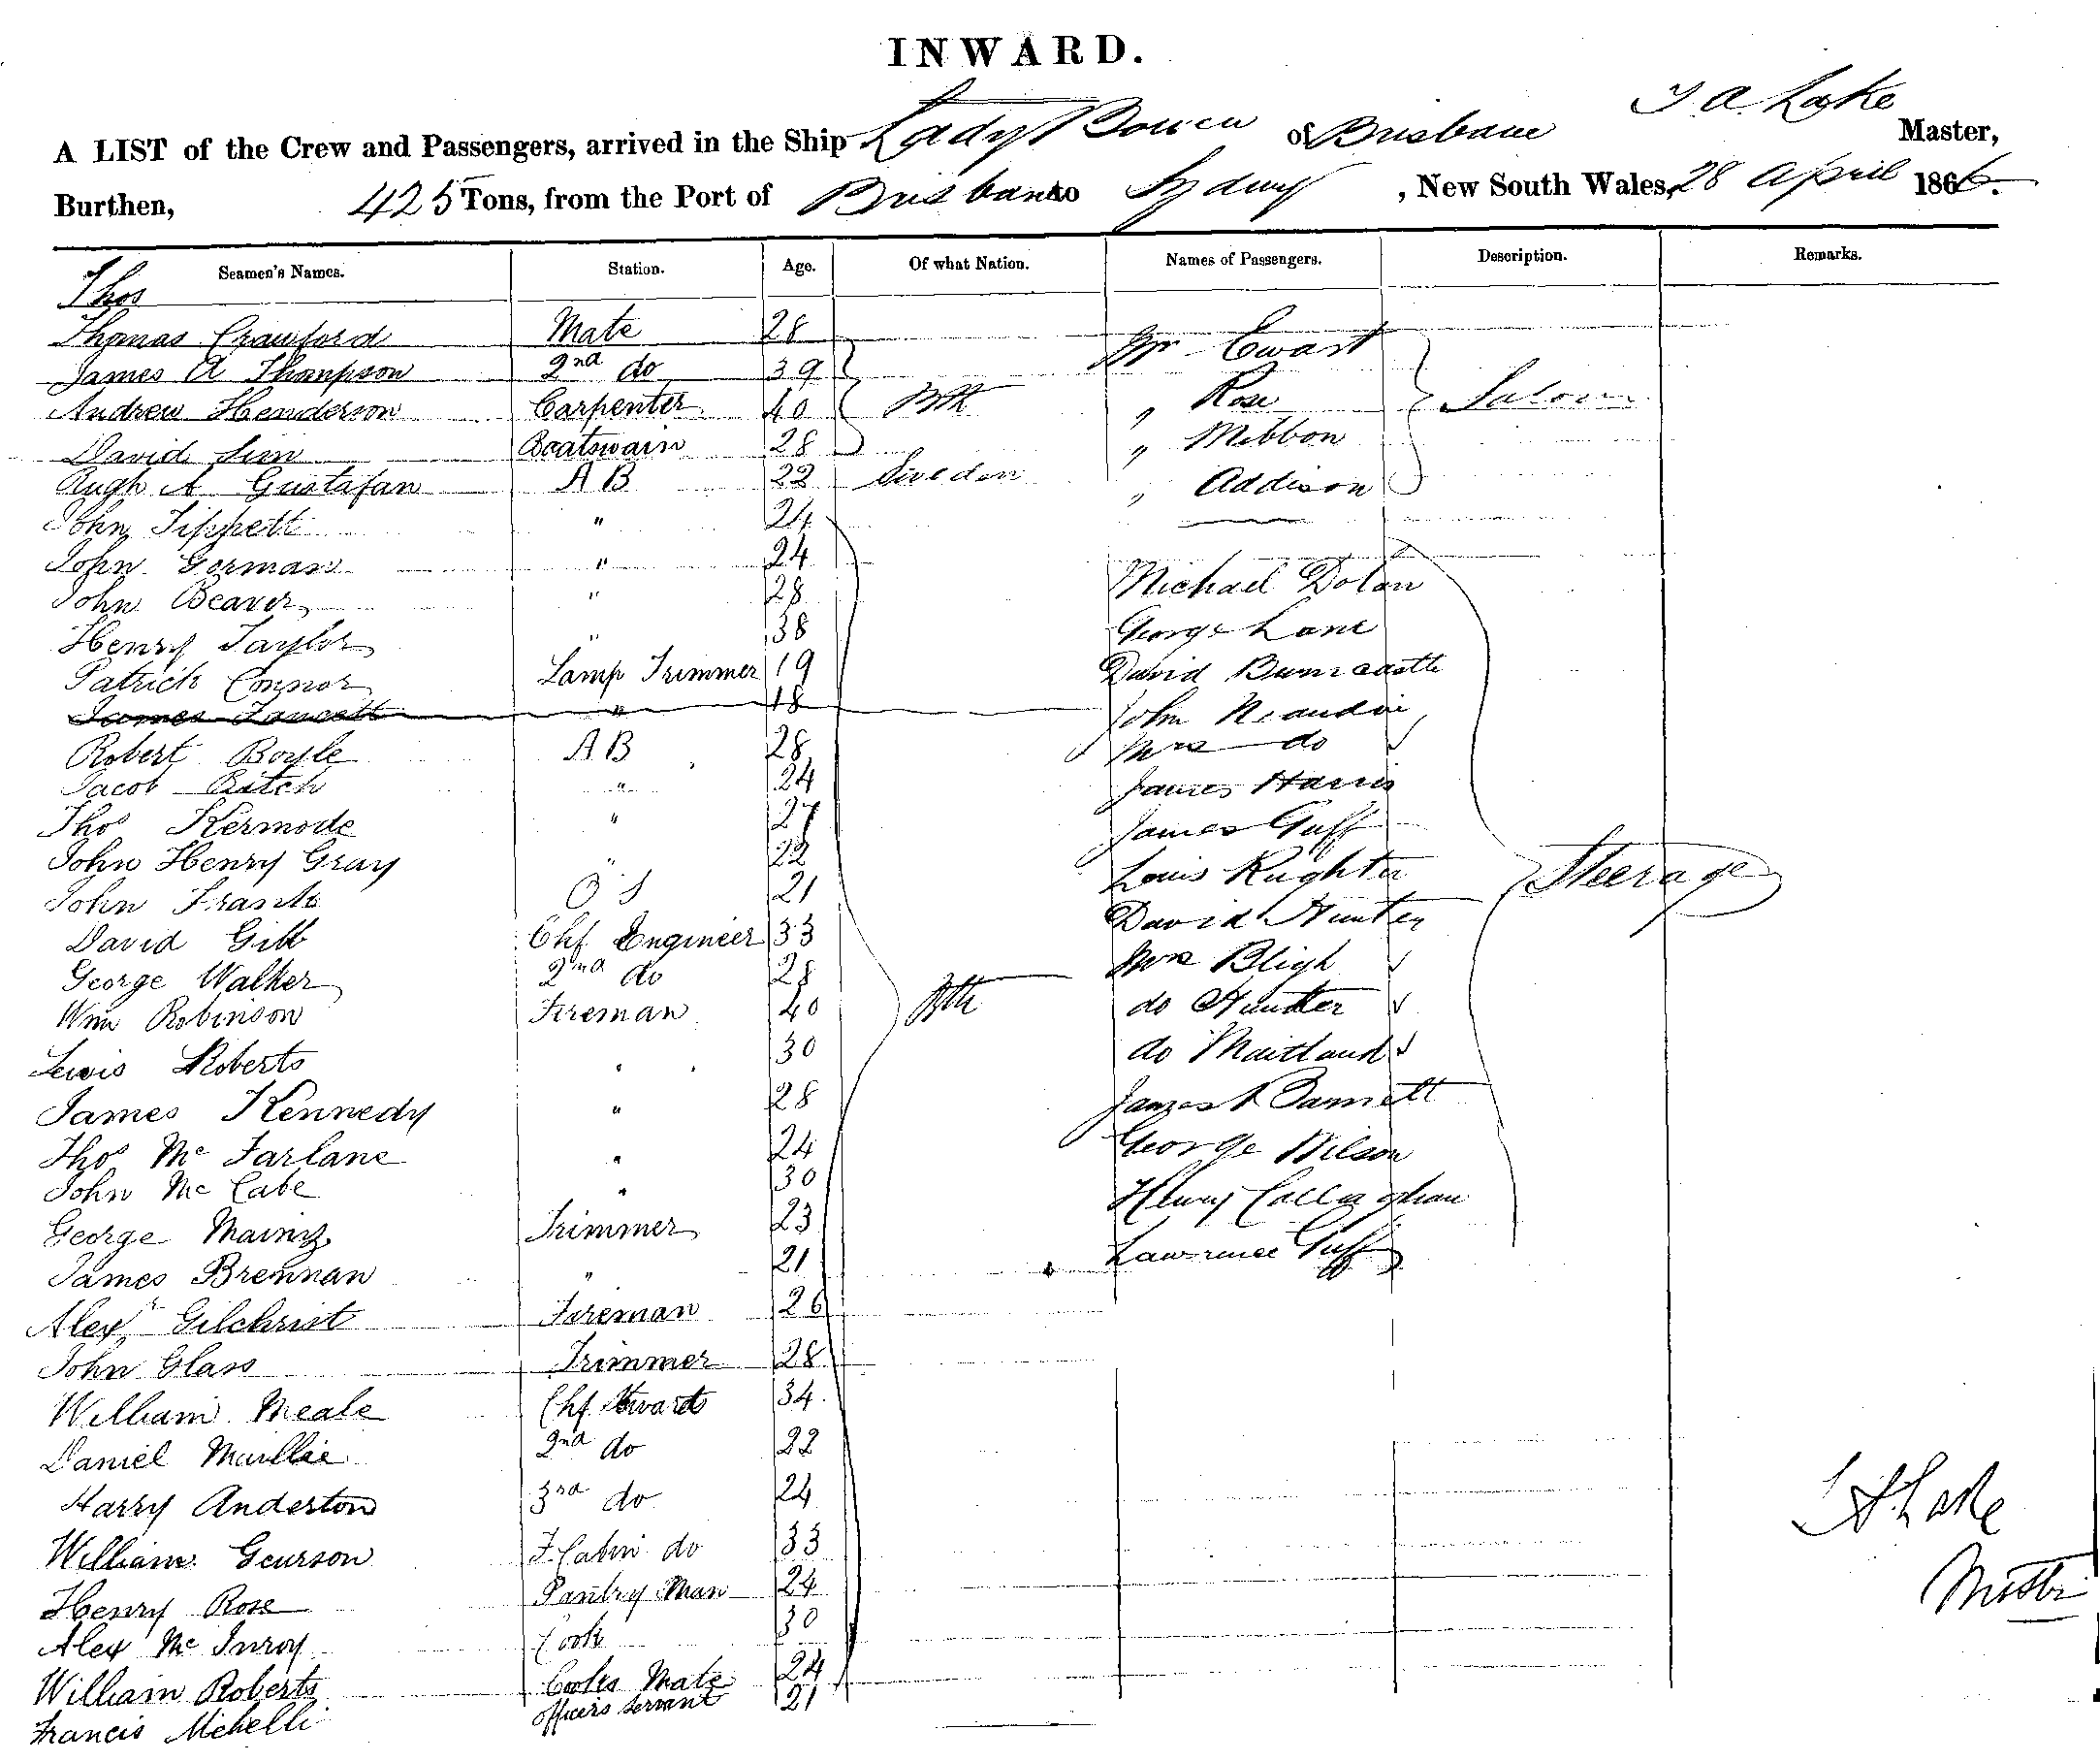 INWARD.
T A Lake
A LIST of the Crew and Passengers, arrived in the Ship Lady Bowen of Brisbane Master,
Burthen, 425 Tons, from the Port of Brisbane to Sydney, New South Wales, 28 April 1866.
Seamen's Names. Station. Age. Of what Nation. Names of Passengers. Description. Remarks.
Thos
Thomas Crawford Mate 28 Mr Ewart
James A Thompson 2nd do 39
Andrew Henderson Carpenter 40 Bth " Rose Saloon
David Sim Boatswain 28 " Mebbon
Augh A Gustafan A B 22 Sweden " Addison
John Tippett " 24
John Gorman " 24 Michael Dolan
John Beaver " 28
Henry Taylor " 38 George Lane
Patrick Connor Lamp Trimmer 19 David Burncastle
James Fawcett " 18 John
Robert Boyle A B 28 Mrs do
Jacob Ritch " 24 James Harris
Thos Kermode " 27 James Guff
John Henry Gray " 22 Louis Rughter Steerage
John Frank O S 21
David Gibb Chf Engineer 33 David Hunter
George Walker 2nd do 28 Mrs Bligh
Wm Robinson Fireman 40 Bth do Hunter
Lewis Roberts " 30 do Maitland
James Kennedy " 28 James Barnett
Thos McFarlane " 24 George Wilson
John McCabe " 30 Henry Callaghan
George Mainz Trimmer 23
James Brennan " 21 Lawrence Guff
Alexr Gilchrist Fireman 26
John Glass Trimmer 28
William Meale Chf Steward 34
Daniel Maillie 2nd do 22
Harry Anderton 3rd do 24 T A Lake
William Geurson F. Cabin do 33
Henry Rose Pantry Man 24 Master
Alex McInroy Cook 30
William Roberts Cooks Mate 24
Francis Michelli Officers Servant 21